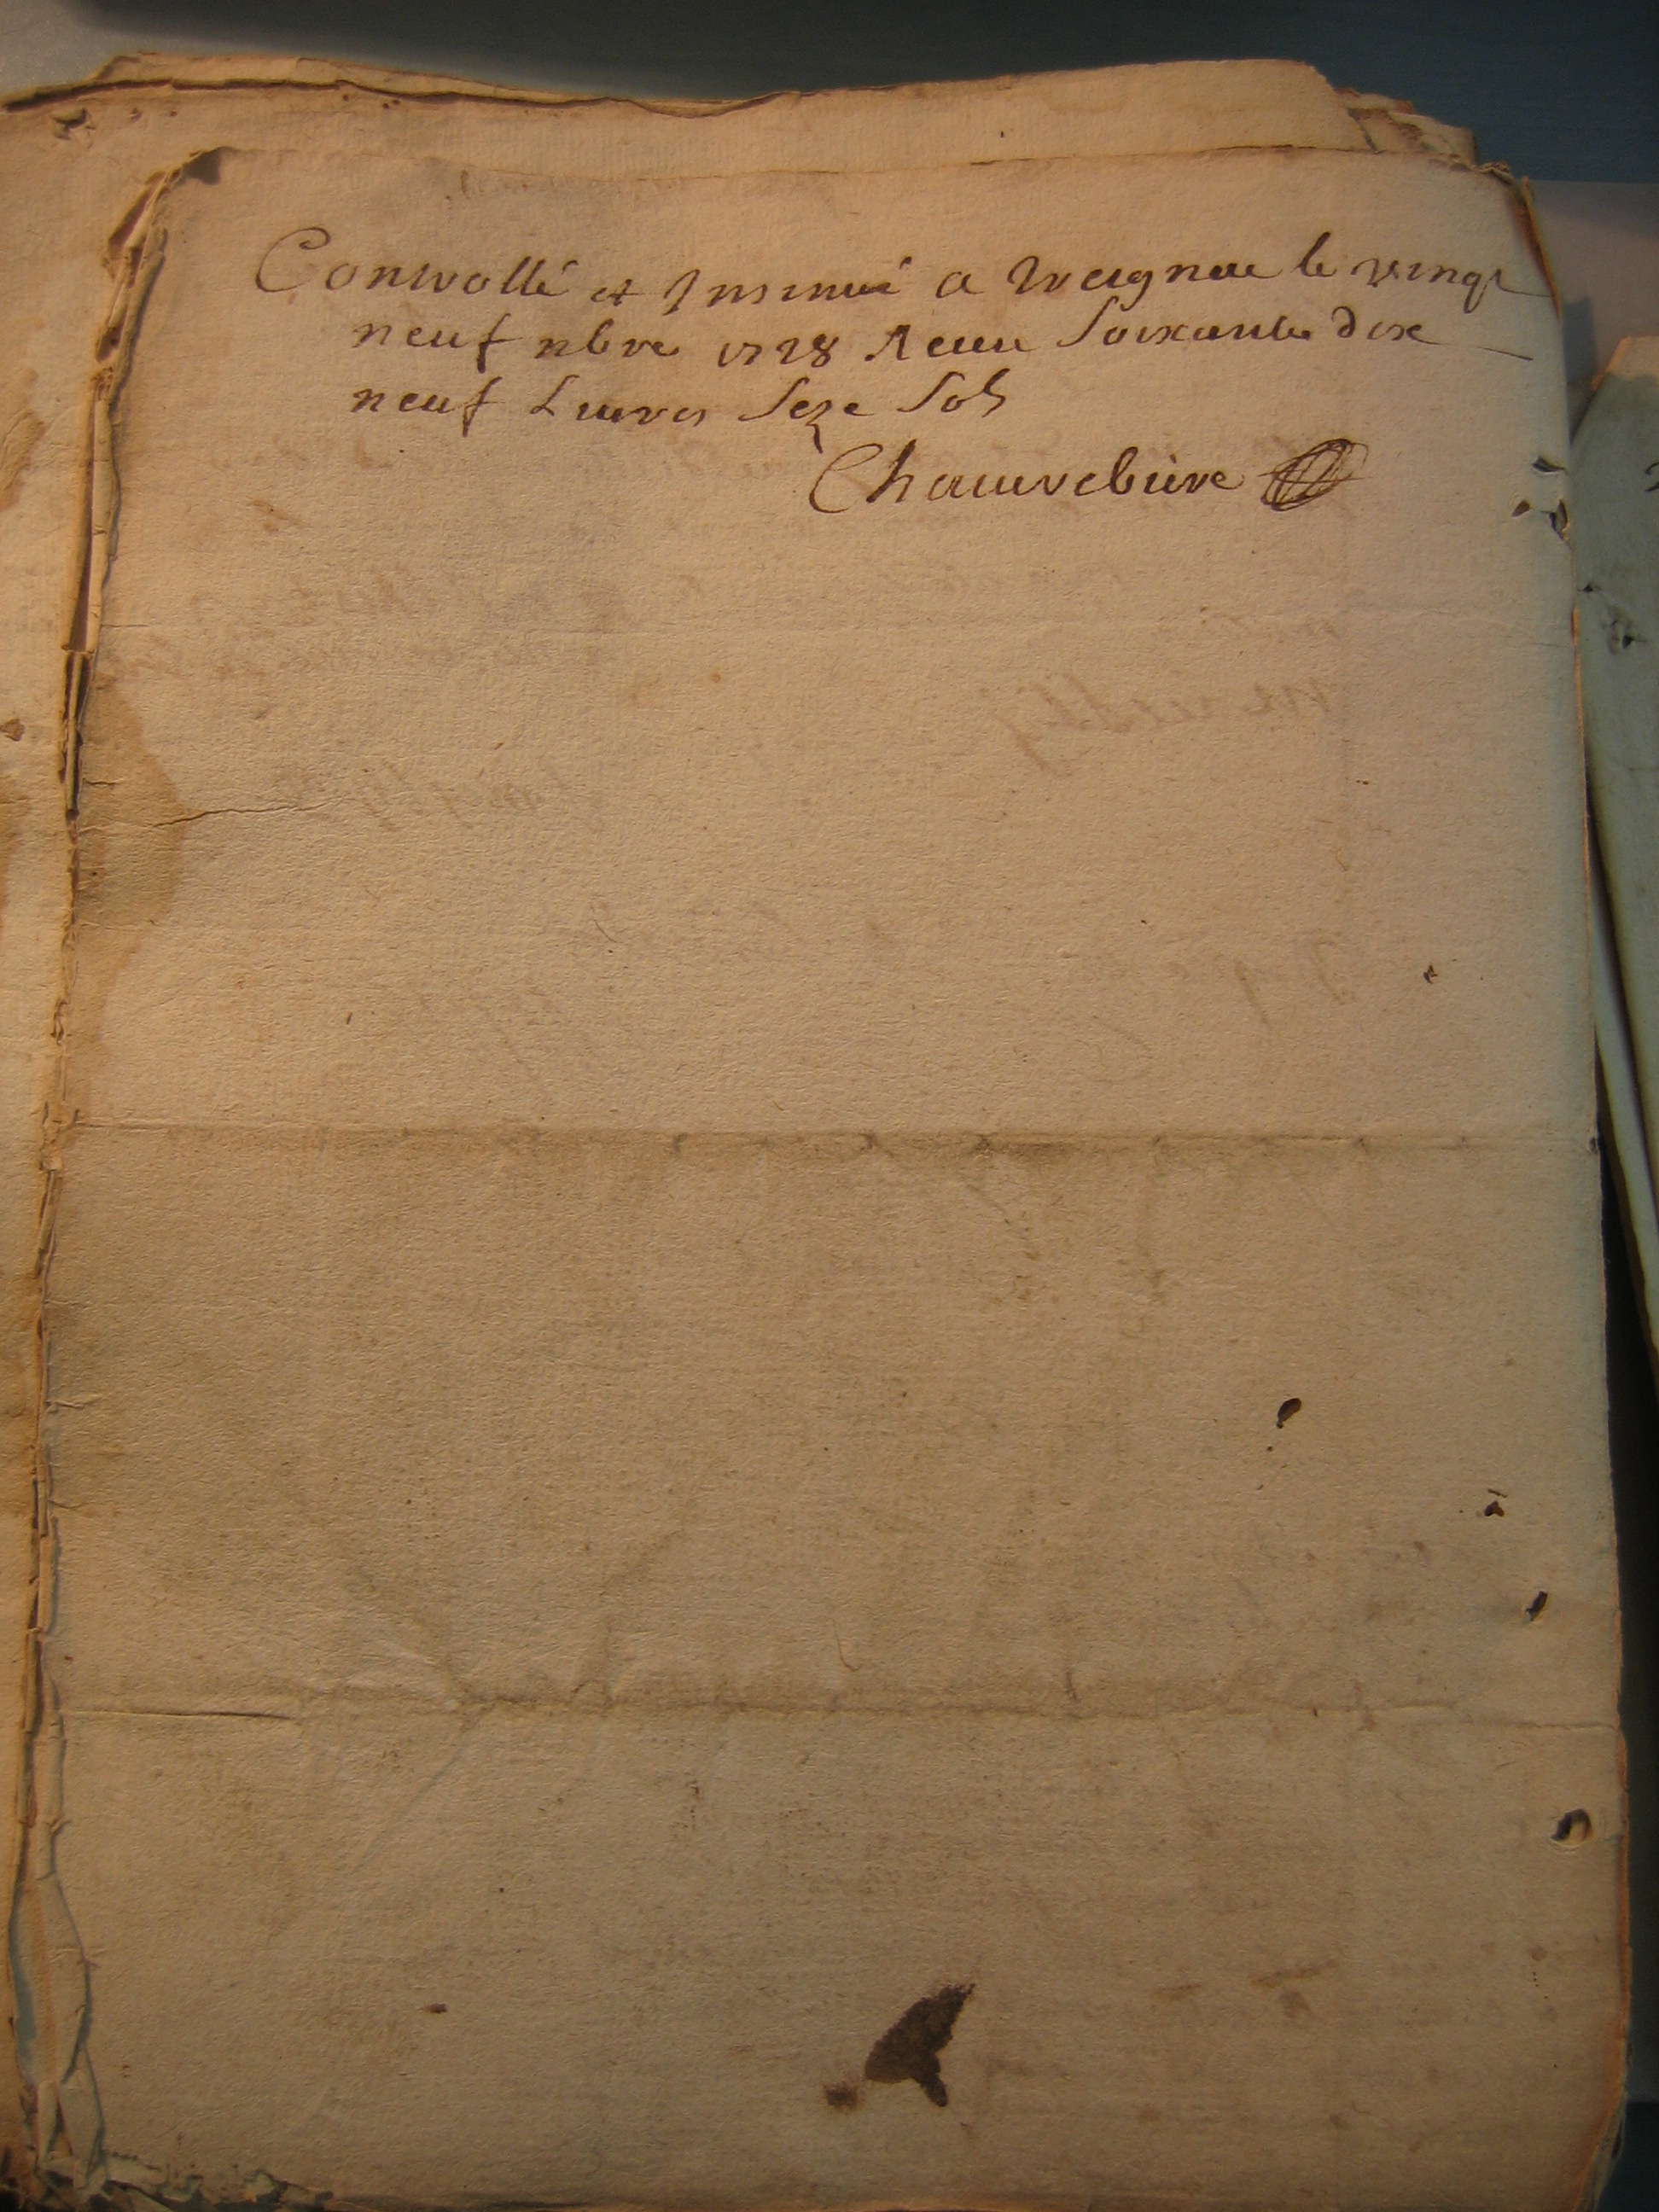 Controllé et Insinué a Treignac le vingt
neuf nbre 1728 Receu Soixante dix
neuf Livres Seze Sols
Chauvebiere